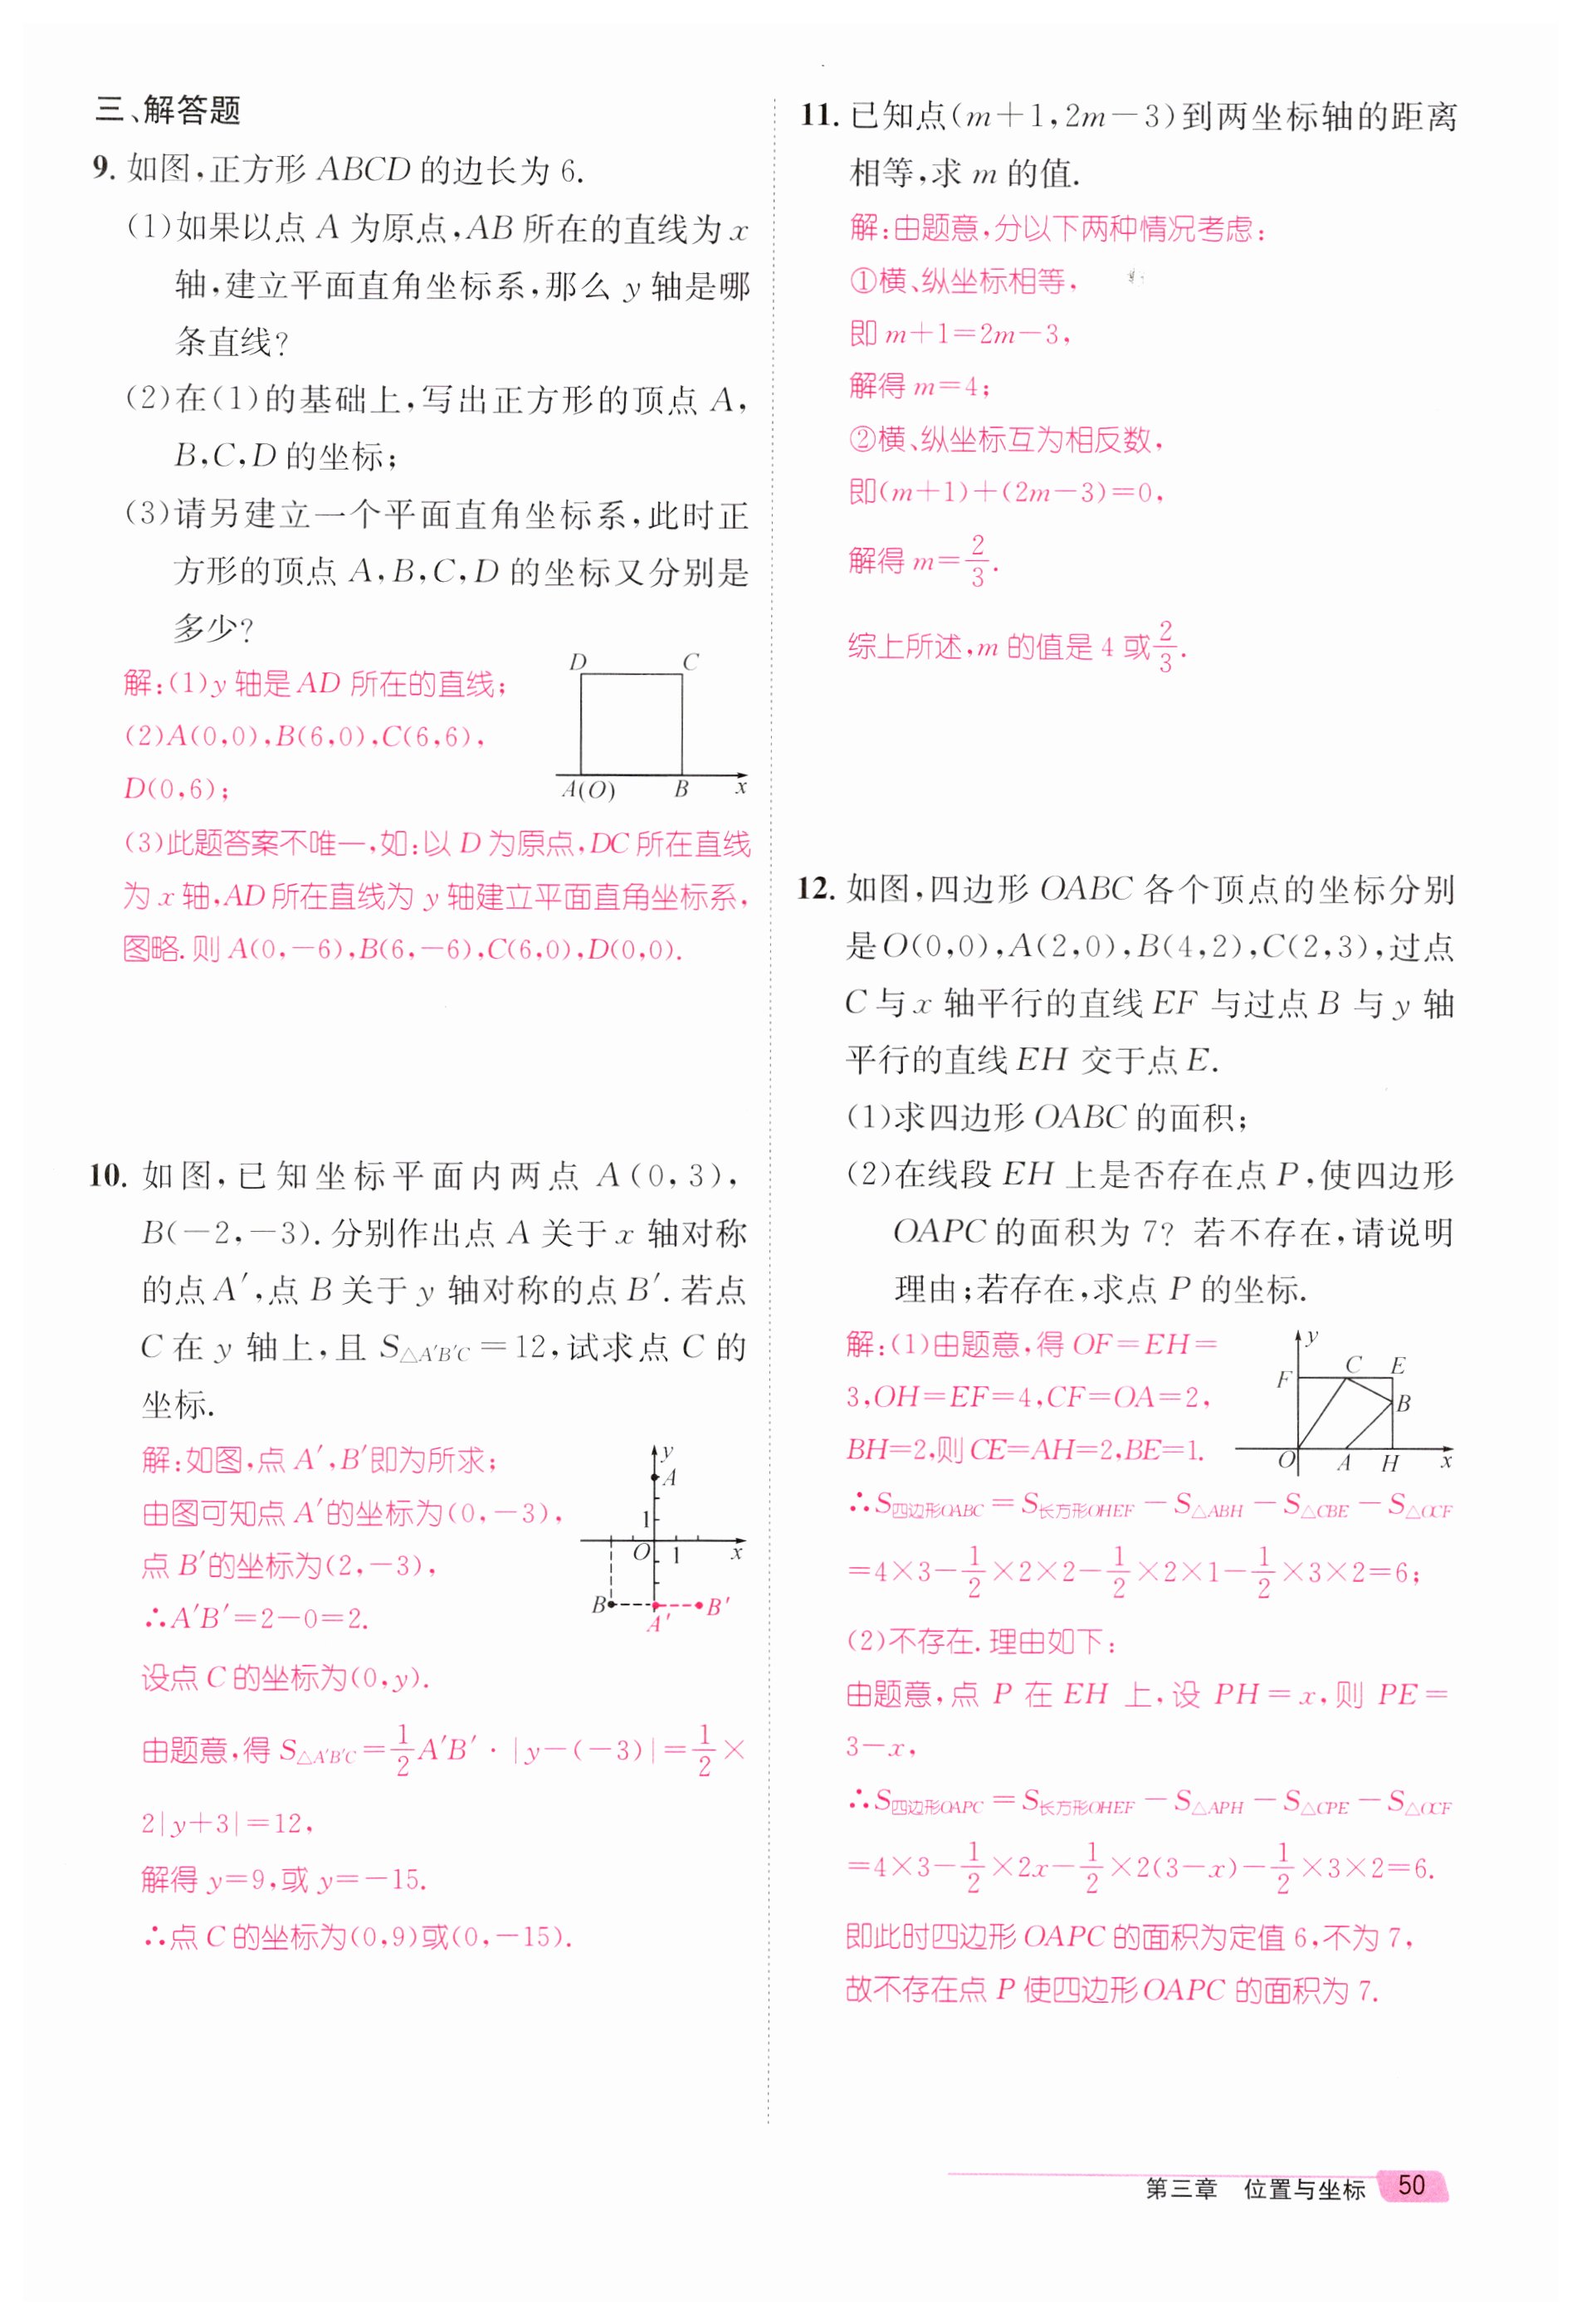 三、解答题
9. 如图,正方形 ABCD 的边长为 6.
(1)如果以点 A 为原点,AB 所在的直线为 x
轴,建立平面直角坐标系,那么 y 轴是哪
条直线?
(2)在(1)的基础上,写出正方形的顶点 A,
B,C,D 的坐标;
(3)请另建立一个平面直角坐标系,此时正
方形的顶点 A,B,C,D 的坐标又分别是
多少?
解:(1)y 轴是 AD 所在的直线;
(2)A(0,0),B(6,0),C(6,6),
D(0,6);
D C
A(O) B x
(3)此题答案不唯一,如:以 D 为原点,DC 所在直线
为 x 轴,AD 所在直线为 y 轴建立平面直角坐标系,
图略. 则 A(0,-6),B(6,-6),C(6,0),D(0,0).
10. 如图,已知坐标平面内两点 A(0,3),
B(-2,-3). 分别作出点 A 关于 x 轴对称
的点 A′,点 B 关于 y 轴对称的点 B′. 若点
C 在 y 轴上,且 S△A′B′C=12,试求点 C 的
坐标.
解:如图,点 A′,B′即为所求;
由图可知点 A′的坐标为(0,-3),
点 B′的坐标为(2,-3),
∴A′B′=2-0=2.
y
A
1
O 1 x
B A′ B′
设点 C 的坐标为(0,y).
由题意,得 S△A′B′C=1/2A′B′·|y-(-3)|=1/2×
2|y+3|=12,
解得 y=9,或 y=-15.
∴点 C 的坐标为(0,9)或(0,-15).
11. 已知点(m+1,2m-3)到两坐标轴的距离
相等,求 m 的值.
解:由题意,分以下两种情况考虑:
①横、纵坐标相等,
即 m+1=2m-3,
解得 m=4;
②横、纵坐标互为相反数,
即(m+1)+(2m-3)=0,
解得 m=2/3.
综上所述,m 的值是 4 或2/3.
12. 如图,四边形 OABC 各个顶点的坐标分别
是 O(0,0),A(2,0),B(4,2),C(2,3),过点
C 与 x 轴平行的直线 EF 与过点 B 与 y 轴
平行的直线 EH 交于点 E.
(1)求四边形 OABC 的面积;
(2)在线段 EH 上是否存在点 P,使四边形
OAPC 的面积为 7? 若不存在,请说明
理由;若存在,求点 P 的坐标.
解:(1)由题意,得 OF=EH=
3,OH=EF=4,CF=OA=2,
BH=2,则 CE=AH=2,BE=1.
y
F C E
B
O A H x
∴S四边形OABC=S长方形OHEF-S△ABH-S△CBE-S△OCF
=4×3-1/2×2×2-1/2×2×1-1/2×3×2=6;
(2)不存在. 理由如下:
由题意,点 P 在 EH 上,设 PH=x,则 PE=
3-x,
∴S四边形OAPC=S长方形OHEF-S△APH-S△CPE-S△OCF
=4×3-1/2×2x-1/2×2(3-x)-1/2×3×2=6.
即此时四边形 OAPC 的面积为定值 6,不为 7,
故不存在点 P 使四边形 OAPC 的面积为 7.
第三章 位置与坐标 50